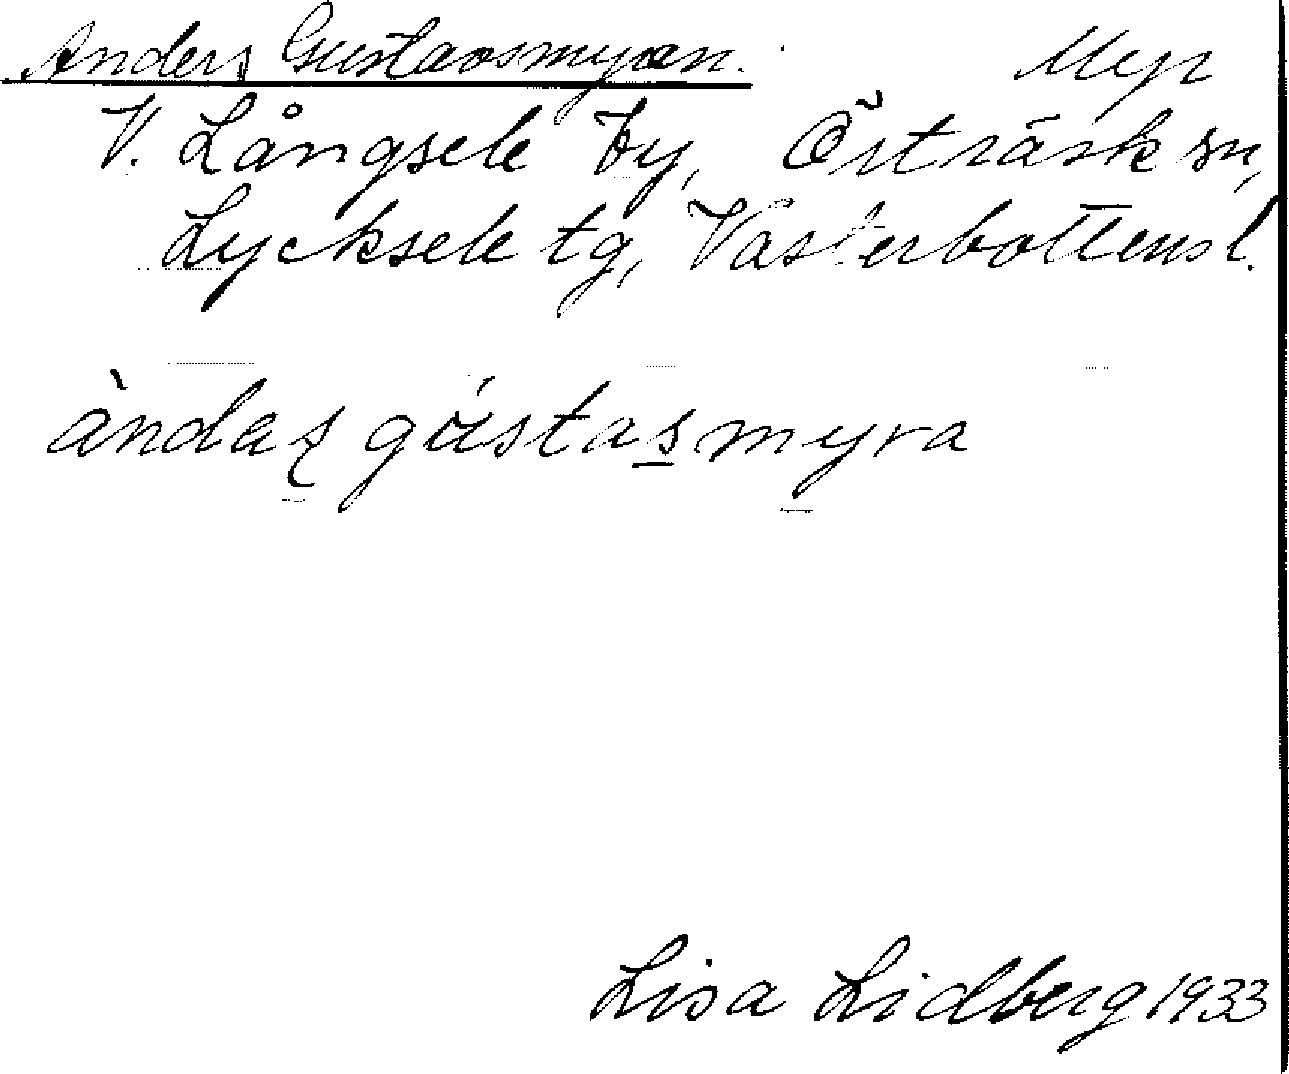 Anders Gustavsmyran. Myr
V. Långsele by, Örträsk sn,
Lycksele tg, Västerbottensl.
àndaʂ gústasmyra
Lisa Lidberg 1933